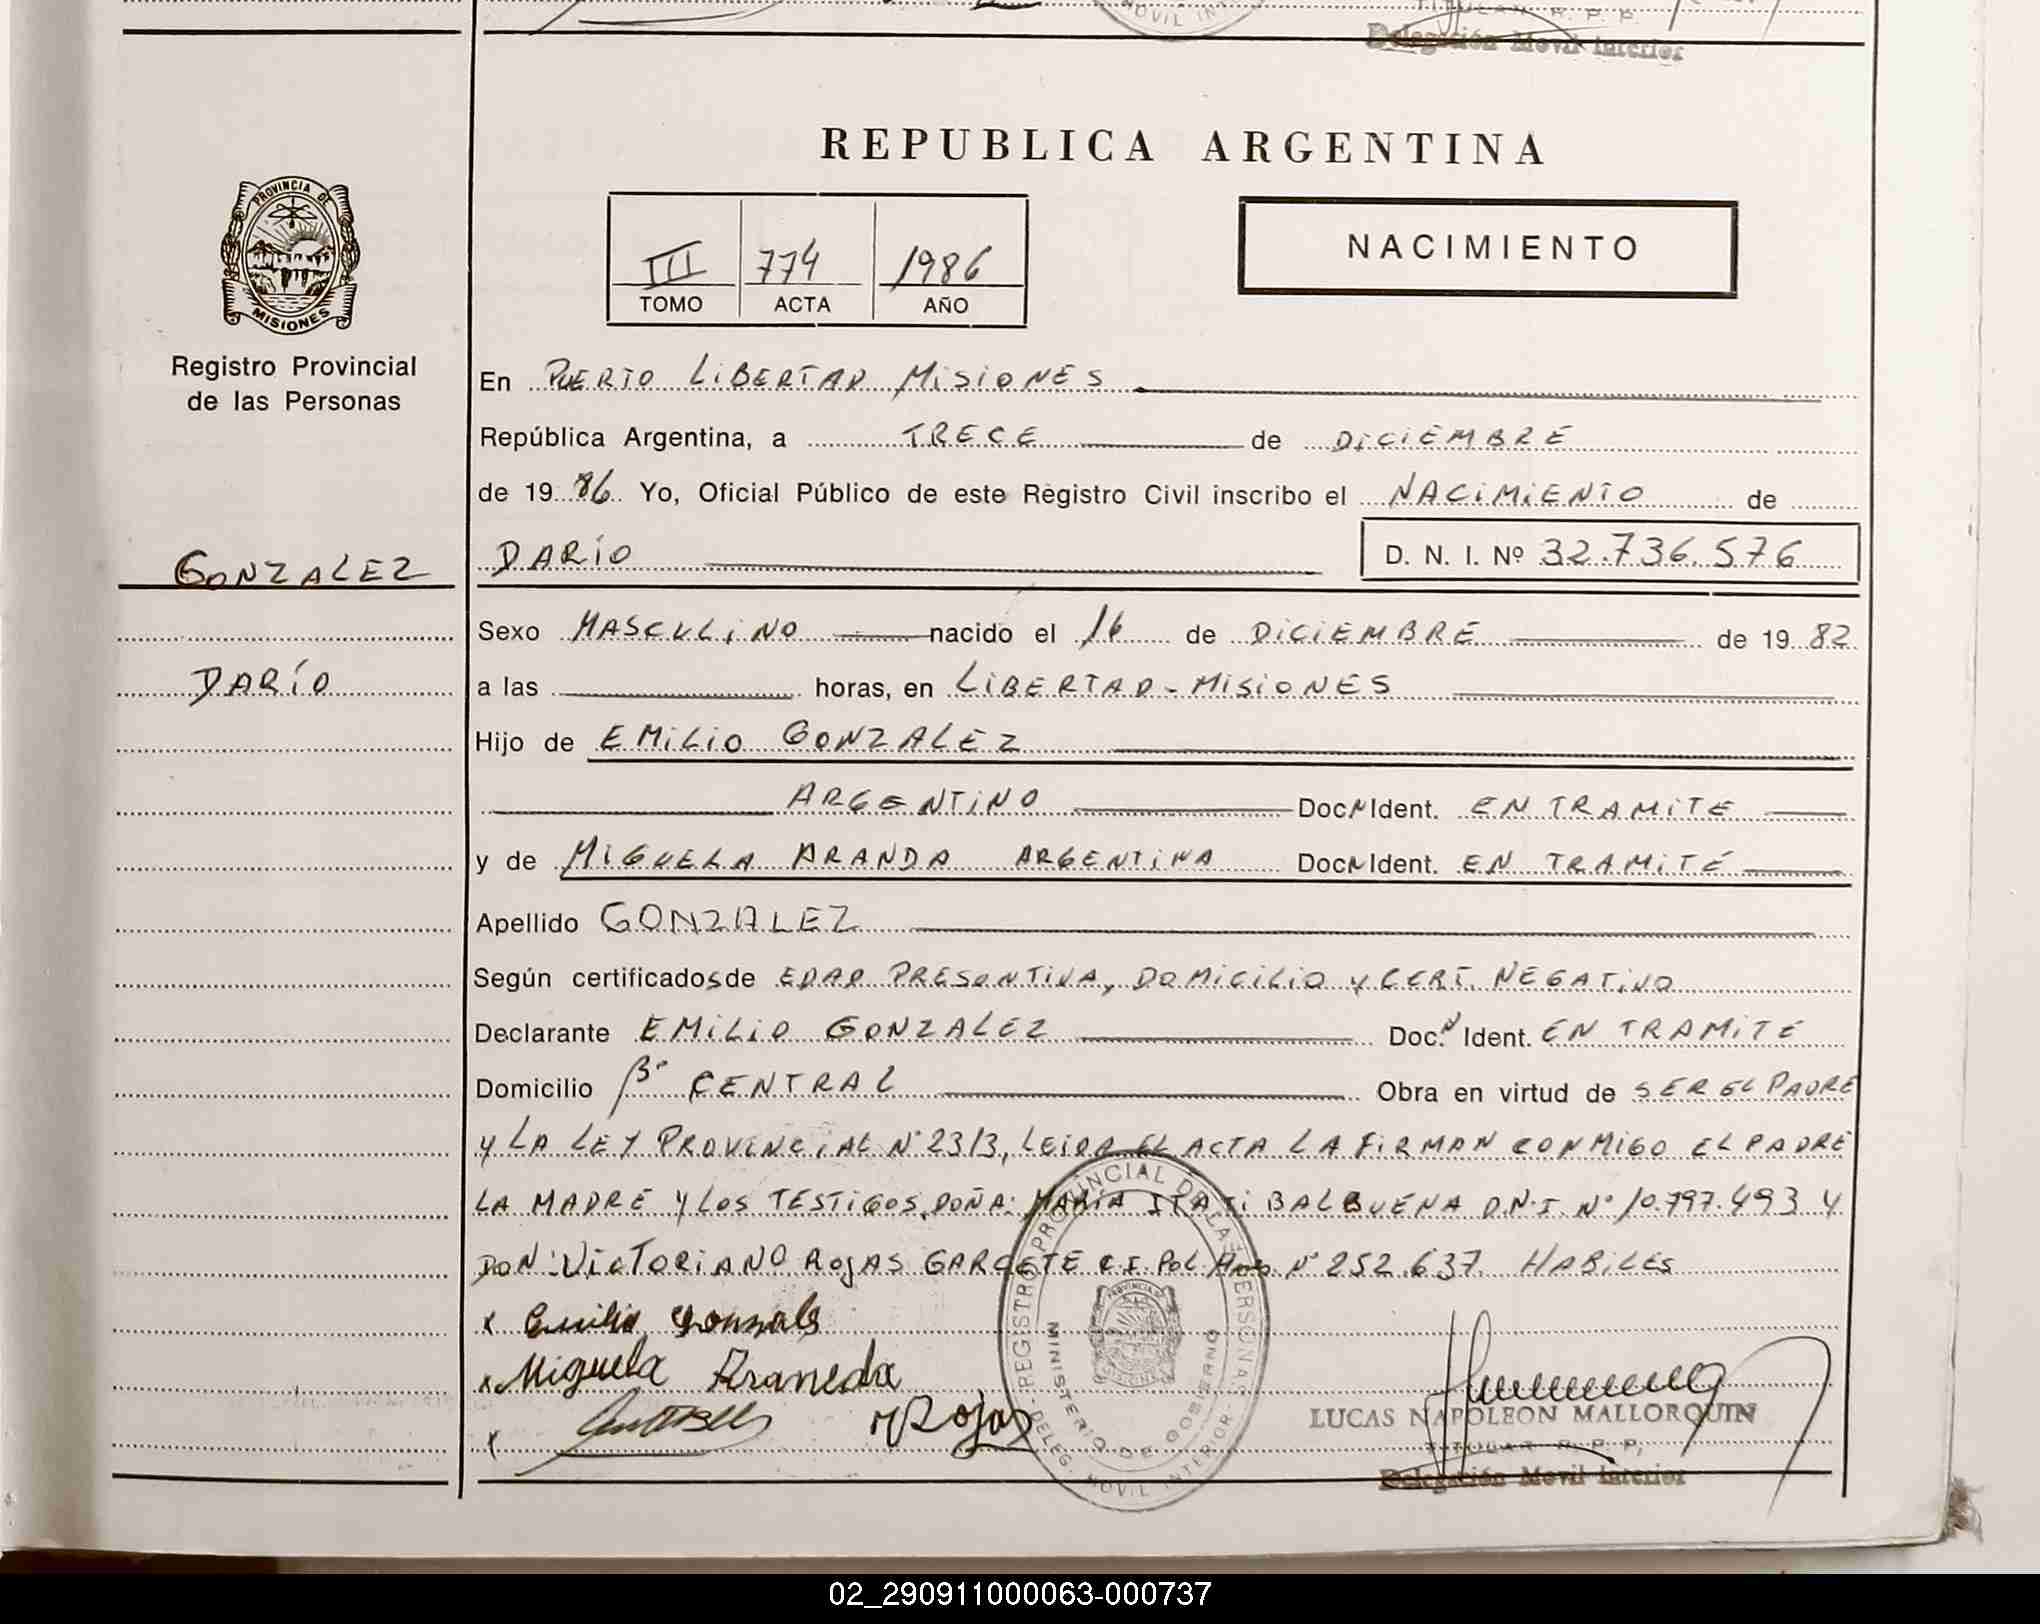 MOVIL INT
TITULAR R. P. P.
Delegación Movil Interior
REPUBLICA ARGENTINA
PROVINCIA DE
MISIONES
III 774 1986
TOMO ACTA AÑO
NACIMIENTO
Registro Provincial
de las Personas
En PUERTO LIBERTAD MISIONES
República Argentina, a TRECE de DICIEMBRE
de 1986 Yo, Oficial Público de este Registro Civil inscribo el NACIMIENTO de
GONZALEZ DARÍO D. N. I. Nº 32.736.576
Sexo MASCULINO nacido el 16 de DICIEMBRE de 1982
DARÍO a las horas, en LIBERTAD - MISIONES
Hijo de EMILIO GONZALEZ
ARGENTINO Doc. N Ident. EN TRAMITE
y de MIGUELA ARANDA ARGENTINA Doc. N Ident. EN TRAMITE
Apellido GONZALEZ
Según certificados de EDAD PRESONTIVA, DOMICILIO Y CERT. NEGATIVO
Declarante EMILIO GONZALEZ Doc. N Ident. EN TRAMITE
Domicilio Bº CENTRAL Obra en virtud de SER EL PADRE
Y LA LEY PROVINCIAL Nº 2313, LEIDA EL ACTA LA FIRMAN CONMIGO EL PADRE
LA MADRE Y LOS TESTIGOS, DOÑA: MARIA ITATI BALBUENA D.N.I. Nº 10.797.493 Y
DON: VICTORIANO ROJAS GARCETE C.I. POL Mnes Nº 252.637. HABILES
x Emilio Gonzals
x Miguela Araneda
x VRojas
REGISTRO PROVINCIAL DE LAS PERSONAS
MINISTERIO DE GOBIERNO
DELEG. MOVIL INTERIOR
PROVINCIA DE
MISIONES
LUCAS NAPOLEON MALLORQUIN
TITULAR R. P. P.
Delegación Movil Interior
02_290911000063-000737